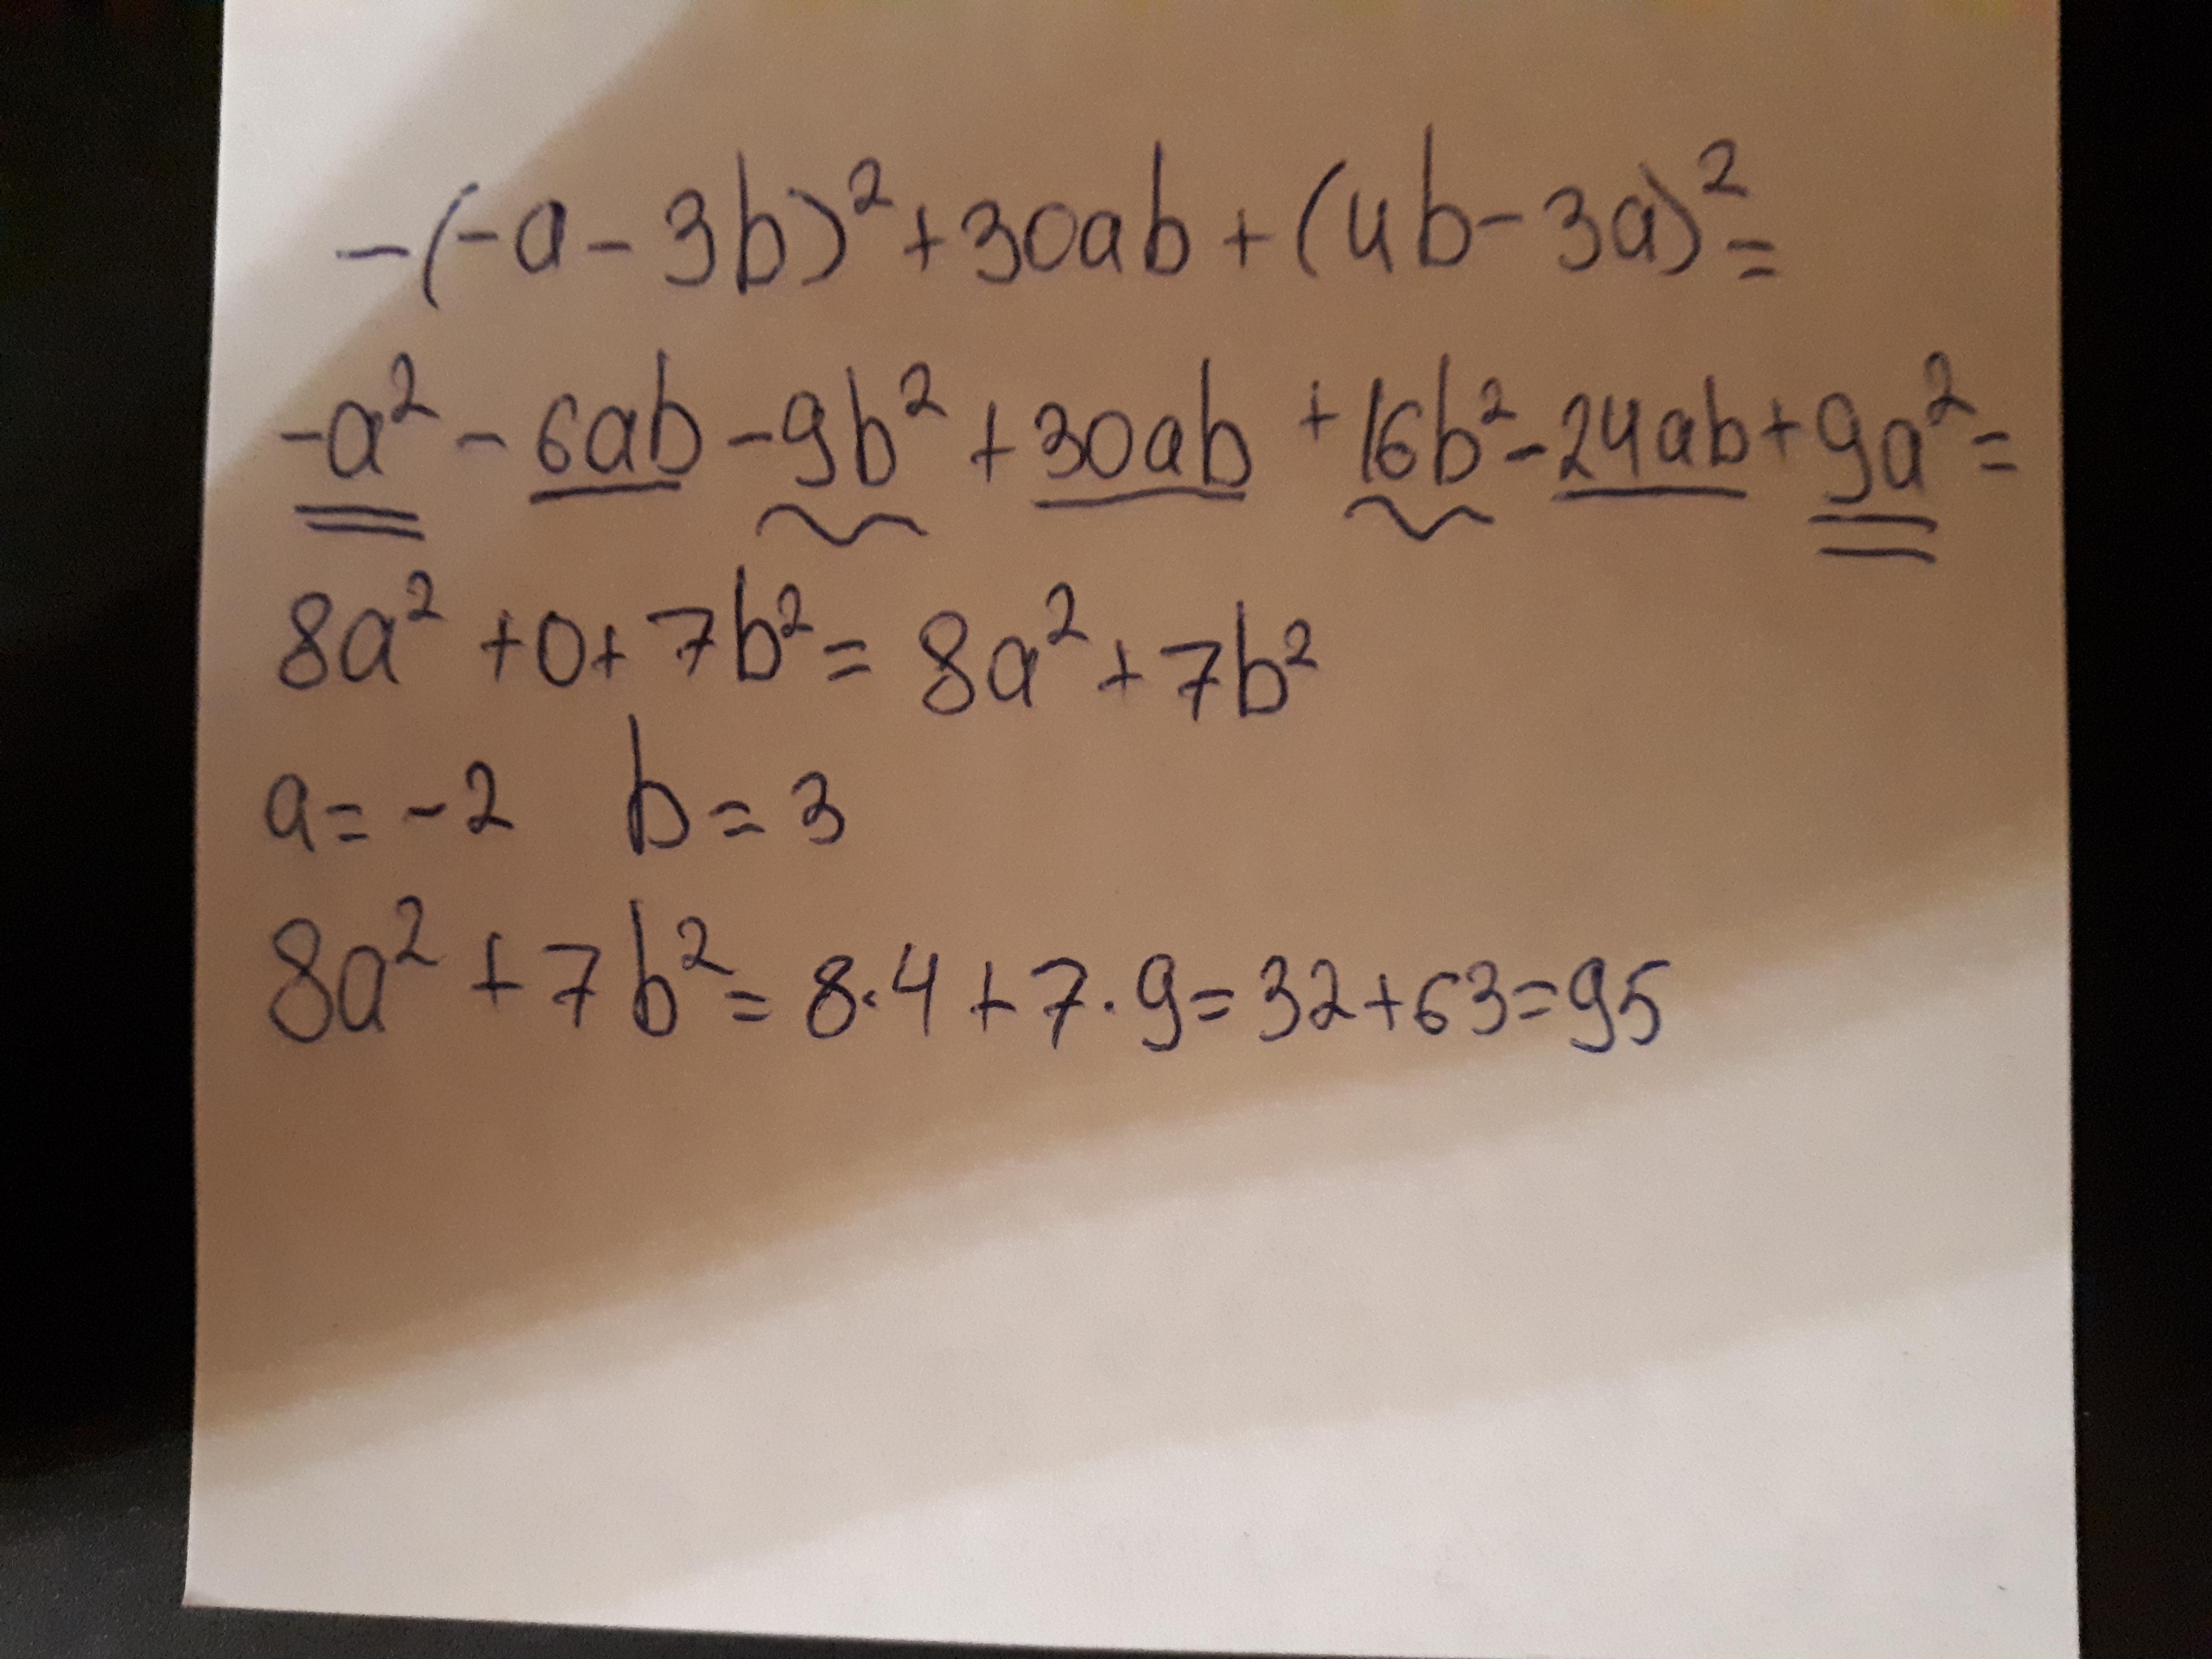 -(-a-3b)²+30ab+(4b-3a)²=
-a²-6ab-9b²+30ab+16b²-24ab+9a²=
8a²+0+7b²=8a²+7b²
a=-2 b=3
8a²+7b²=8·4+7·9=32+63=95